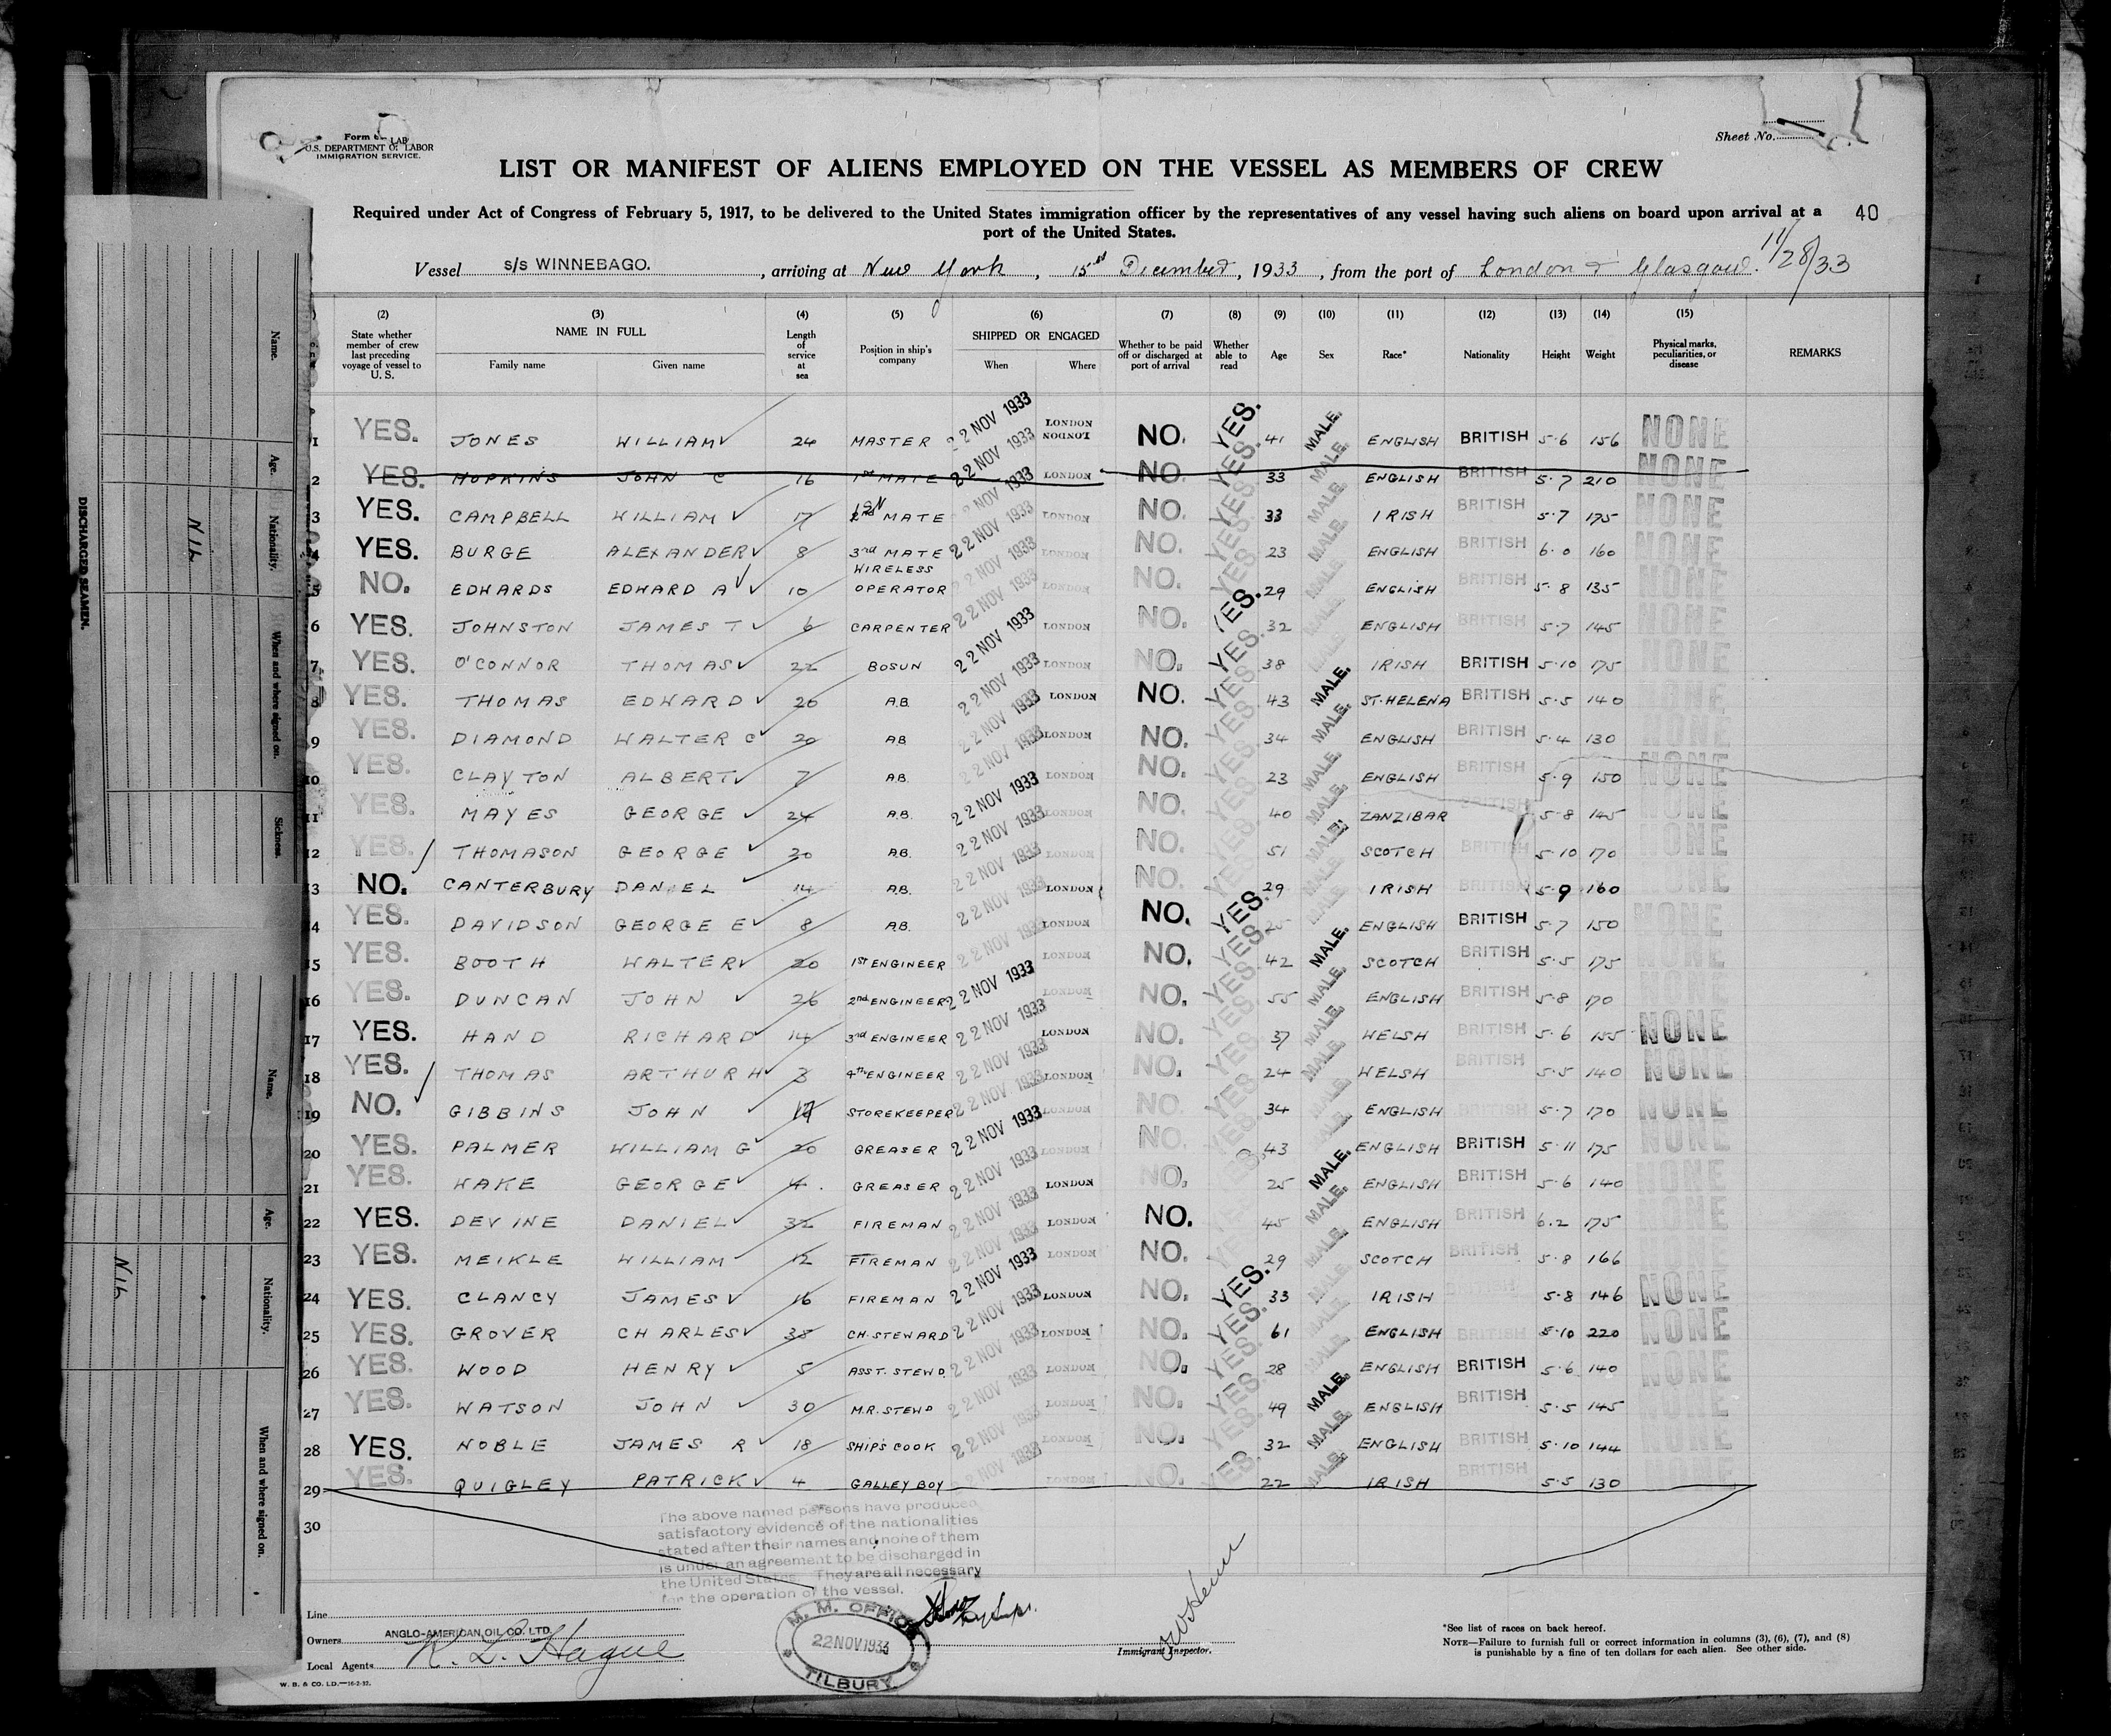 Form
U.S. DEPARTMENT OF LABOR
IMMIGRATION SERVICE.
Sheet No.
LIST OR MANIFEST OF ALIENS EMPLOYED ON THE VESSEL AS MEMBERS OF CREW
Required under Act of Congress of February 5, 1917, to be delivered to the United States immigration officer by the representatives of any vessel having such aliens on board upon arrival at a 40
port of the United States.
Vessel s/s WINNEBAGO. , arriving at New York , 15 December , 1933 , from the port of London & Glasgow. 11/28/33
(2) (3) (4) (5) (6) (7) (8) (9) (10) (11) (12) (13) (14) (15)
State whether member of crew last preceding voyage of vessel to U. S. NAME IN FULL Family name Given name Length of service at sea Position in ship's company SHIPPED OR ENGAGED When Where Whether to be paid off or discharged at port of arrival Whether able to read Age Sex Race* Nationality Height Weight Physical marks, peculiarities, or disease REMARKS
1 YES. JONES WILLIAM 24 MASTER 22 NOV 1933 LONDON LONDON NO. YES. 41 MALE. ENGLISH BRITISH 5·6 156 NONE
2 YES. HOPKINS JOHN C 16 1st MATE 22 NOV 1933 LONDON NO. YES. 33 MALE. ENGLISH BRITISH 5·7 210 NONE
3 YES. CAMPBELL WILLIAM 17 2nd 1st MATE 22 NOV 1933 LONDON NO. YES. 33 MALE. IRISH BRITISH 5·7 175 NONE
4 YES. BURGE ALEXANDER 8 3rd MATE 22 NOV 1933 LONDON NO. YES. 23 MALE. ENGLISH BRITISH 6·0 160 NONE
5 NO. EDWARDS EDWARD A 10 WIRELESS OPERATOR 22 NOV 1933 LONDON NO. YES. 29 MALE. ENGLISH BRITISH 5·8 135 NONE
6 YES. JOHNSTON JAMES T 6 CARPENTER 22 NOV 1933 LONDON NO. YES. 32 MALE. ENGLISH BRITISH 5·7 145 NONE
7 YES. O'CONNOR THOMAS 22 BOSUN 22 NOV 1933 LONDON NO. YES. 38 MALE. IRISH BRITISH 5·10 175 NONE
8 YES. THOMAS EDWARD 26 A.B. 22 NOV 1933 LONDON NO. YES. 43 MALE. ST. HELENA BRITISH 5·5 140 NONE
9 YES. DIAMOND WALTER C 20 AB 22 NOV 1933 LONDON NO. YES. 34 MALE. ENGLISH BRITISH 5·4 130 NONE
10 YES. CLAYTON ALBERT 7 AB. 22 NOV 1933 LONDON NO. YES. 23 MALE. ENGLISH BRITISH 5·9 150 NONE
11 YES. MAYES GEORGE 24 A.B. 22 NOV 1933 LONDON NO. YES. 40 MALE. ZANZIBAR BRITISH 5·8 145 NONE
12 YES. THOMASON GEORGE 30 A.B. 22 NOV 1933 LONDON NO. YES. 51 MALE. SCOTCH BRITISH 5·10 170 NONE
13 NO. CANTERBURY DANIEL 14 A.B. 22 NOV 1933 LONDON NO. YES. 29 MALE. IRISH BRITISH 5·9 160 NONE
14 YES. DAVIDSON GEORGE E 8 A.B. 22 NOV 1933 LONDON NO. YES. 25 MALE. ENGLISH BRITISH 5·7 150 NONE
15 YES. BOOTH WALTER 20 1ST ENGINEER 22 NOV 1933 LONDON NO. YES. 42 MALE. SCOTCH BRITISH 5·5 175 NONE
16 YES. DUNCAN JOHN 26 2nd ENGINEER 22 NOV 1933 LONDON NO. YES. 55 MALE. ENGLISH BRITISH 5·8 170
17 YES. HAND RICHARD 14 3rd ENGINEER 22 NOV 1933 LONDON NO. YES. 37 MALE. WELSH BRITISH 5·6 155 NONE
18 YES. THOMAS ARTHUR H 3 4th ENGINEER 22 NOV 1933 LONDON NO. YES. 24 MALE. WELSH BRITISH 5·5 140 NONE
19 NO. GIBBINS JOHN STOREKEEPER 22 NOV 1933 LONDON NO. YES. 34 MALE. ENGLISH BRITISH 5·7 170 NONE
20 YES. PALMER WILLIAM G 20 GREASER 22 NOV 1933 LONDON NO. YES. 43 MALE. ENGLISH BRITISH 5·11 175 NONE
21 YES. WAKE GEORGE 4 GREASER 22 NOV 1933 LONDON NO. YES. 25 MALE. ENGLISH BRITISH 5·6 140 NONE
22 YES. DEVINE DANIEL 32 FIREMAN 22 NOV 1933 LONDON NO. YES. 45 MALE. ENGLISH BRITISH 6·2 175 NONE
23 YES. MEIKLE WILLIAM 12 FIREMAN 22 NOV 1933 LONDON NO. YES. 29 MALE. SCOTCH BRITISH 5·8 166
24 YES. CLANCY JAMES 16 FIREMAN 22 NOV 1933 LONDON NO. YES. 33 MALE. IRISH 5·8 146 NONE
25 YES. GROVER CHARLES 38 CH. STEWARD 22 NOV 1933 LONDON NO. YES. 61 MALE. ENGLISH BRITISH 5·10 220 NONE
26 YES. WOOD HENRY 5 ASST. STEWD. 22 NOV 1933 LONDON NO. YES. 28 MALE. ENGLISH BRITISH 5·6 140 NONE
27 YES. WATSON JOHN 30 M.R. STEWD 22 NOV 1933 LONDON NO. YES. 49 MALE. ENGLISH BRITISH 5·5 145 NONE
28 YES. NOBLE JAMES R 18 SHIPS COOK 22 NOV 1933 LONDON NO. YES. 32 MALE. ENGLISH BRITISH 5·10 144 NONE
29 YES. QUIGLEY PATRICK 4 GALLEY BOY 22 NOV 1933 LONDON NO. YES. 22 MALE. IRISH BRITISH 5·5 130 NONE
30
The above named persons have produced
satisfactory evidence of the nationalities
stated after their names and none of them
is under an agreement to be discharged in
the United States. They are all necessary
for the operation of the vessel.
Line
Owners ANGLO-AMERICAN OIL CO. LTD.
Local Agents K. L. Hague
W. B. & CO. LD.—16-2-32.
M. M. OFFICE
22 NOV 1933
TILBURY
Immigrant Inspector.
*See list of races on back hereof.
NOTE—Failure to furnish full or correct information in columns (3), (6), (7), and (8)
is punishable by a fine of ten dollars for each alien. See other side.
DISCHARGED SEAMEN.
Name. Age. Nationality. When and where signed on. Sickness.
NIL
Name. Age. Nationality. When and where signed on.
NIL